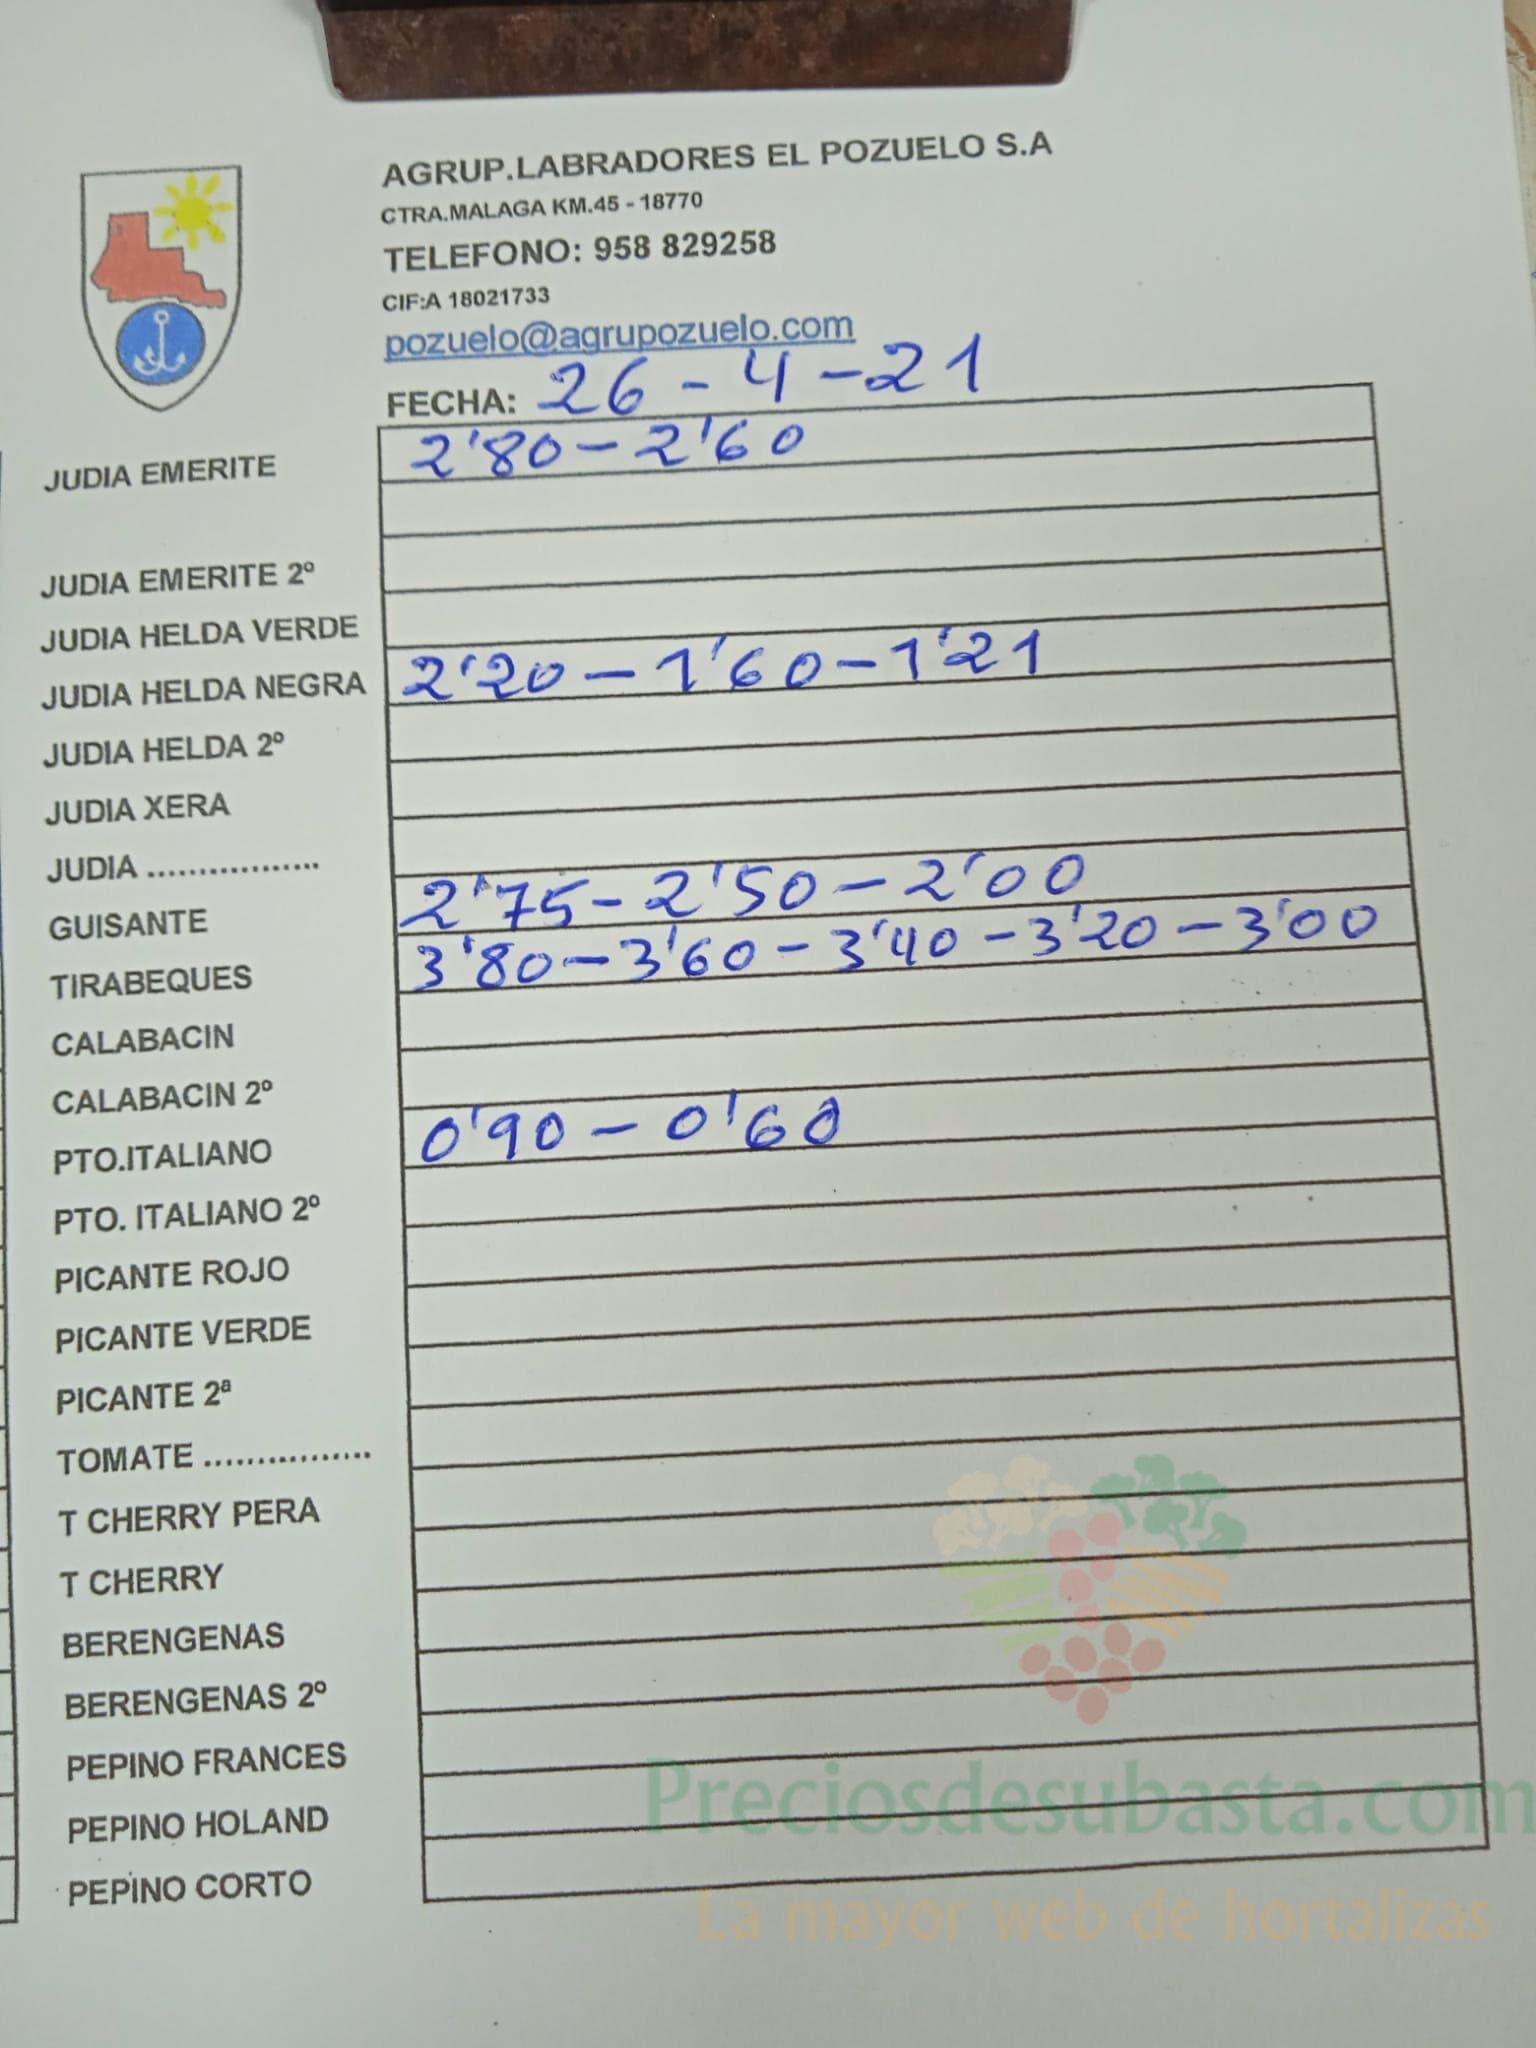 AGRUP.LABRADORES EL POZUELO S.A
CTRA.MALAGA KM.45 - 18770
TELEFONO: 958 829258
CIF:A 18021733
pozuelo@agrupozuelo.com
FECHA: 26 - 4 - 21
JUDIA EMERITE 2'80 - 2'60
JUDIA EMERITE 2º
JUDIA HELDA VERDE
JUDIA HELDA NEGRA 2'20 - 1'60 - 1'21
JUDIA HELDA 2º
JUDIA XERA
JUDIA .................
GUISANTE 2'75 - 2'50 - 2'00
TIRABEQUES 3'80 - 3'60 - 3'40 - 3'20 - 3'00
CALABACIN
CALABACIN 2º
PTO.ITALIANO 0'90 - 0'60
PTO. ITALIANO 2º
PICANTE ROJO
PICANTE VERDE
PICANTE 2ª
TOMATE ................
T CHERRY PERA
T CHERRY
BERENGENAS
BERENGENAS 2º
PEPINO FRANCES
PEPINO HOLAND
PEPINO CORTO
Preciosdesubasta.com
La mayor web de hortalizas